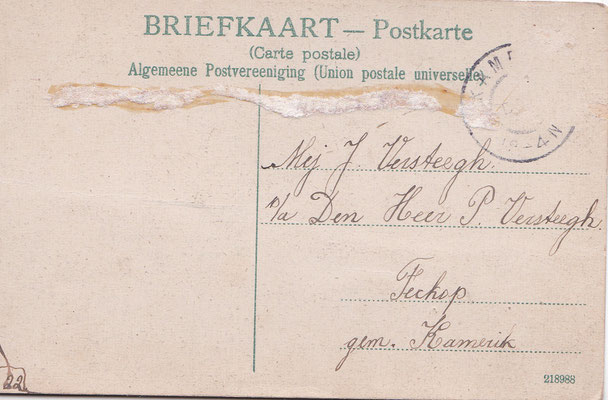 BRIEFKAART — Postkarte
(Carte postale)
Algemeene Postvereeniging (Union postale universelle)
12-4N
Mej J. Versteegh.
p/a Den Heer P. Versteegh.
Teckop
gem. Kamerik
22
218988